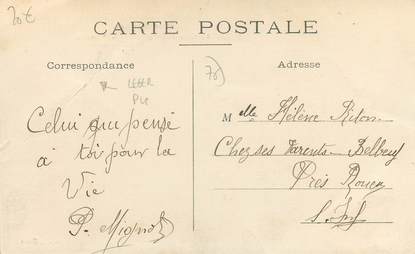 20€
CARTE POSTALE
Correspondance
Adresse
Celui qui pense
à toi pour la
Vie
P. Mignot
Melle Hélène
Chez ses Parents Belbeuf
Près Rouen
S. Inf